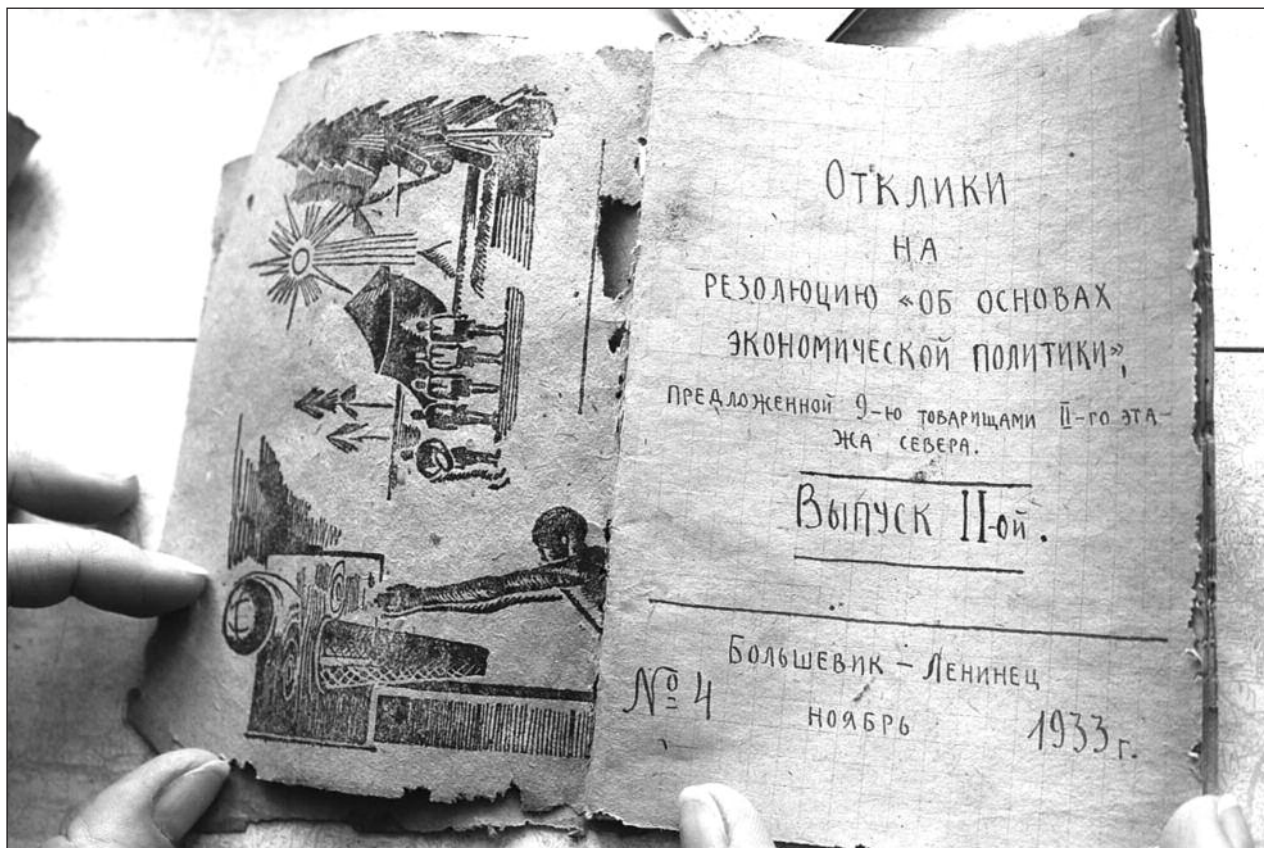 ОТКЛИКИ
НА
РЕЗОЛЮЦИЮ «ОБ ОСНОВАХ
ЭКОНОМИЧЕСКОЙ ПОЛИТИКИ»,
ПРЕДЛОЖЕННОЙ 9-Ю ТОВАРИЩАМИ II-ГО ЭТА-
ЖА СЕВЕРА.
ВЫПУСК II-ОЙ.
БОЛЬШЕВИК – ЛЕНИНЕЦ
№ 4 НОЯБРЬ 1933 г.